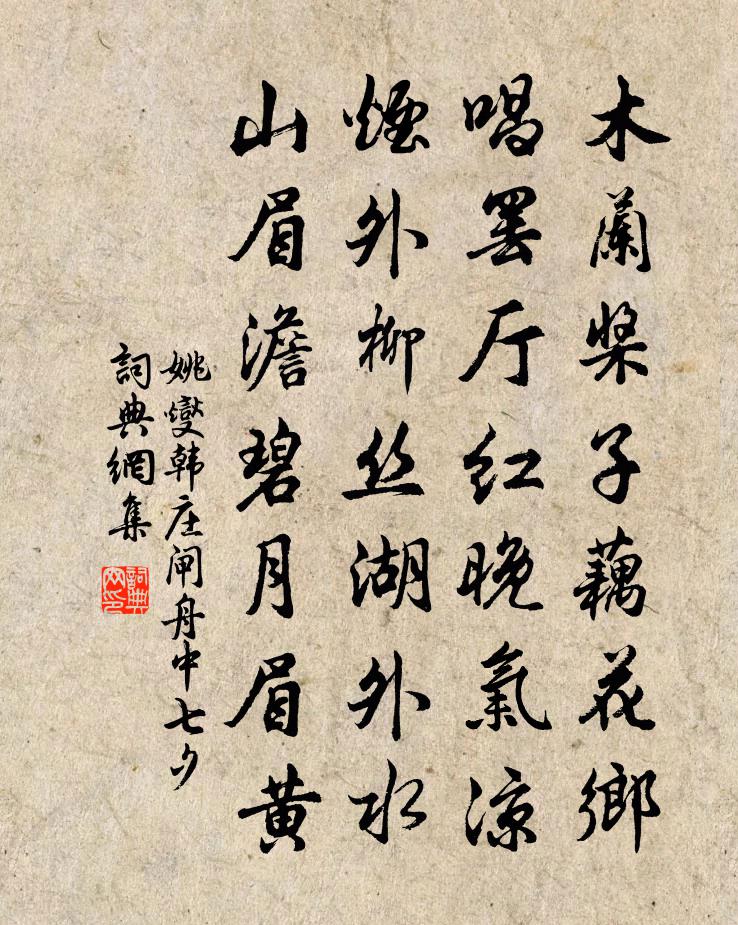 木蘭桨子藕花鄉
唱罢厅红晚氣涼
煙外柳丝湖外水
山眉澹碧月眉黄
姚燮韩庄闸舟中七夕
詞典網集
詞典网印